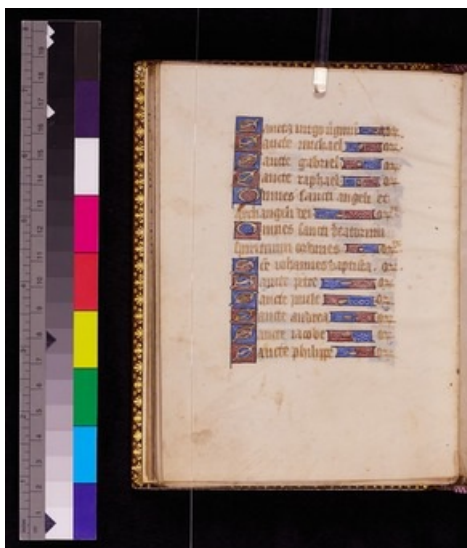 Sancta uirgo uirginum or
Sancte michael or
Sancte gabriel or
Sancte raphael or
Omnes sancti angeli et
archangeli dei or
Omnes sancti beatorum
spirituum ordines or
Sce iohannes baptista. or
Sancte petre or
Sancte paule or
Sancte andrea or
Sancte iacobe or
Sancte philippe or